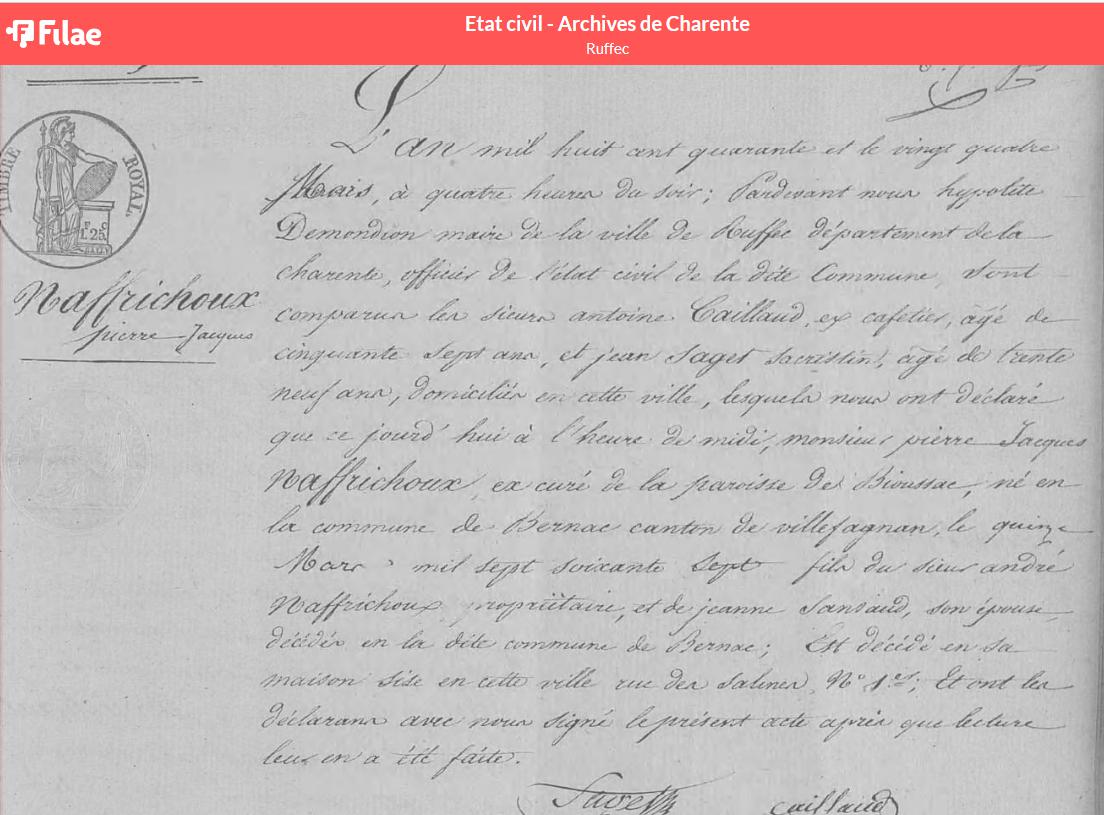 Filae
Etat civil - Archives de Charente
Ruffec
TIMBRE ROYAL
1.25
Naffrichoux
pierre Jacques
L'an mil huit cent quarante et le vingt quatre
Mars, à quatre heures du soir; Pardevant nous hypolite
Demondion maire de la ville de Ruffec département de la
charente, officier de l'état civil de la dite Commune, sont
comparus les sieurs antoine Caillaud, ex cafetier, âgé de
cinquante sept ans, et jean Saget sacristin, âgé de trente
neuf ans, domiciliés en cette ville, lesquels nous ont déclaré
que ce jourd'hui à l'heure de midi, monsieur pierre Jacques
Naffrichoux, ex curé de la paroisse de Bioussac, né en
la commune de Bernac canton de villefagnan, le quinze
Mars mil sept soixante sept fils du sieur andré
Naffrichoux propriétaire, et de jeanne Sansaud, son épouse
décédés en la dite commune de Bernac; Est décédé en sa
maison sise en cette ville rue des salines, N° 1er; Et ont les
déclarans avec nous signé le présent acte après que lecture
leur en a été faite.
Saget caillaud